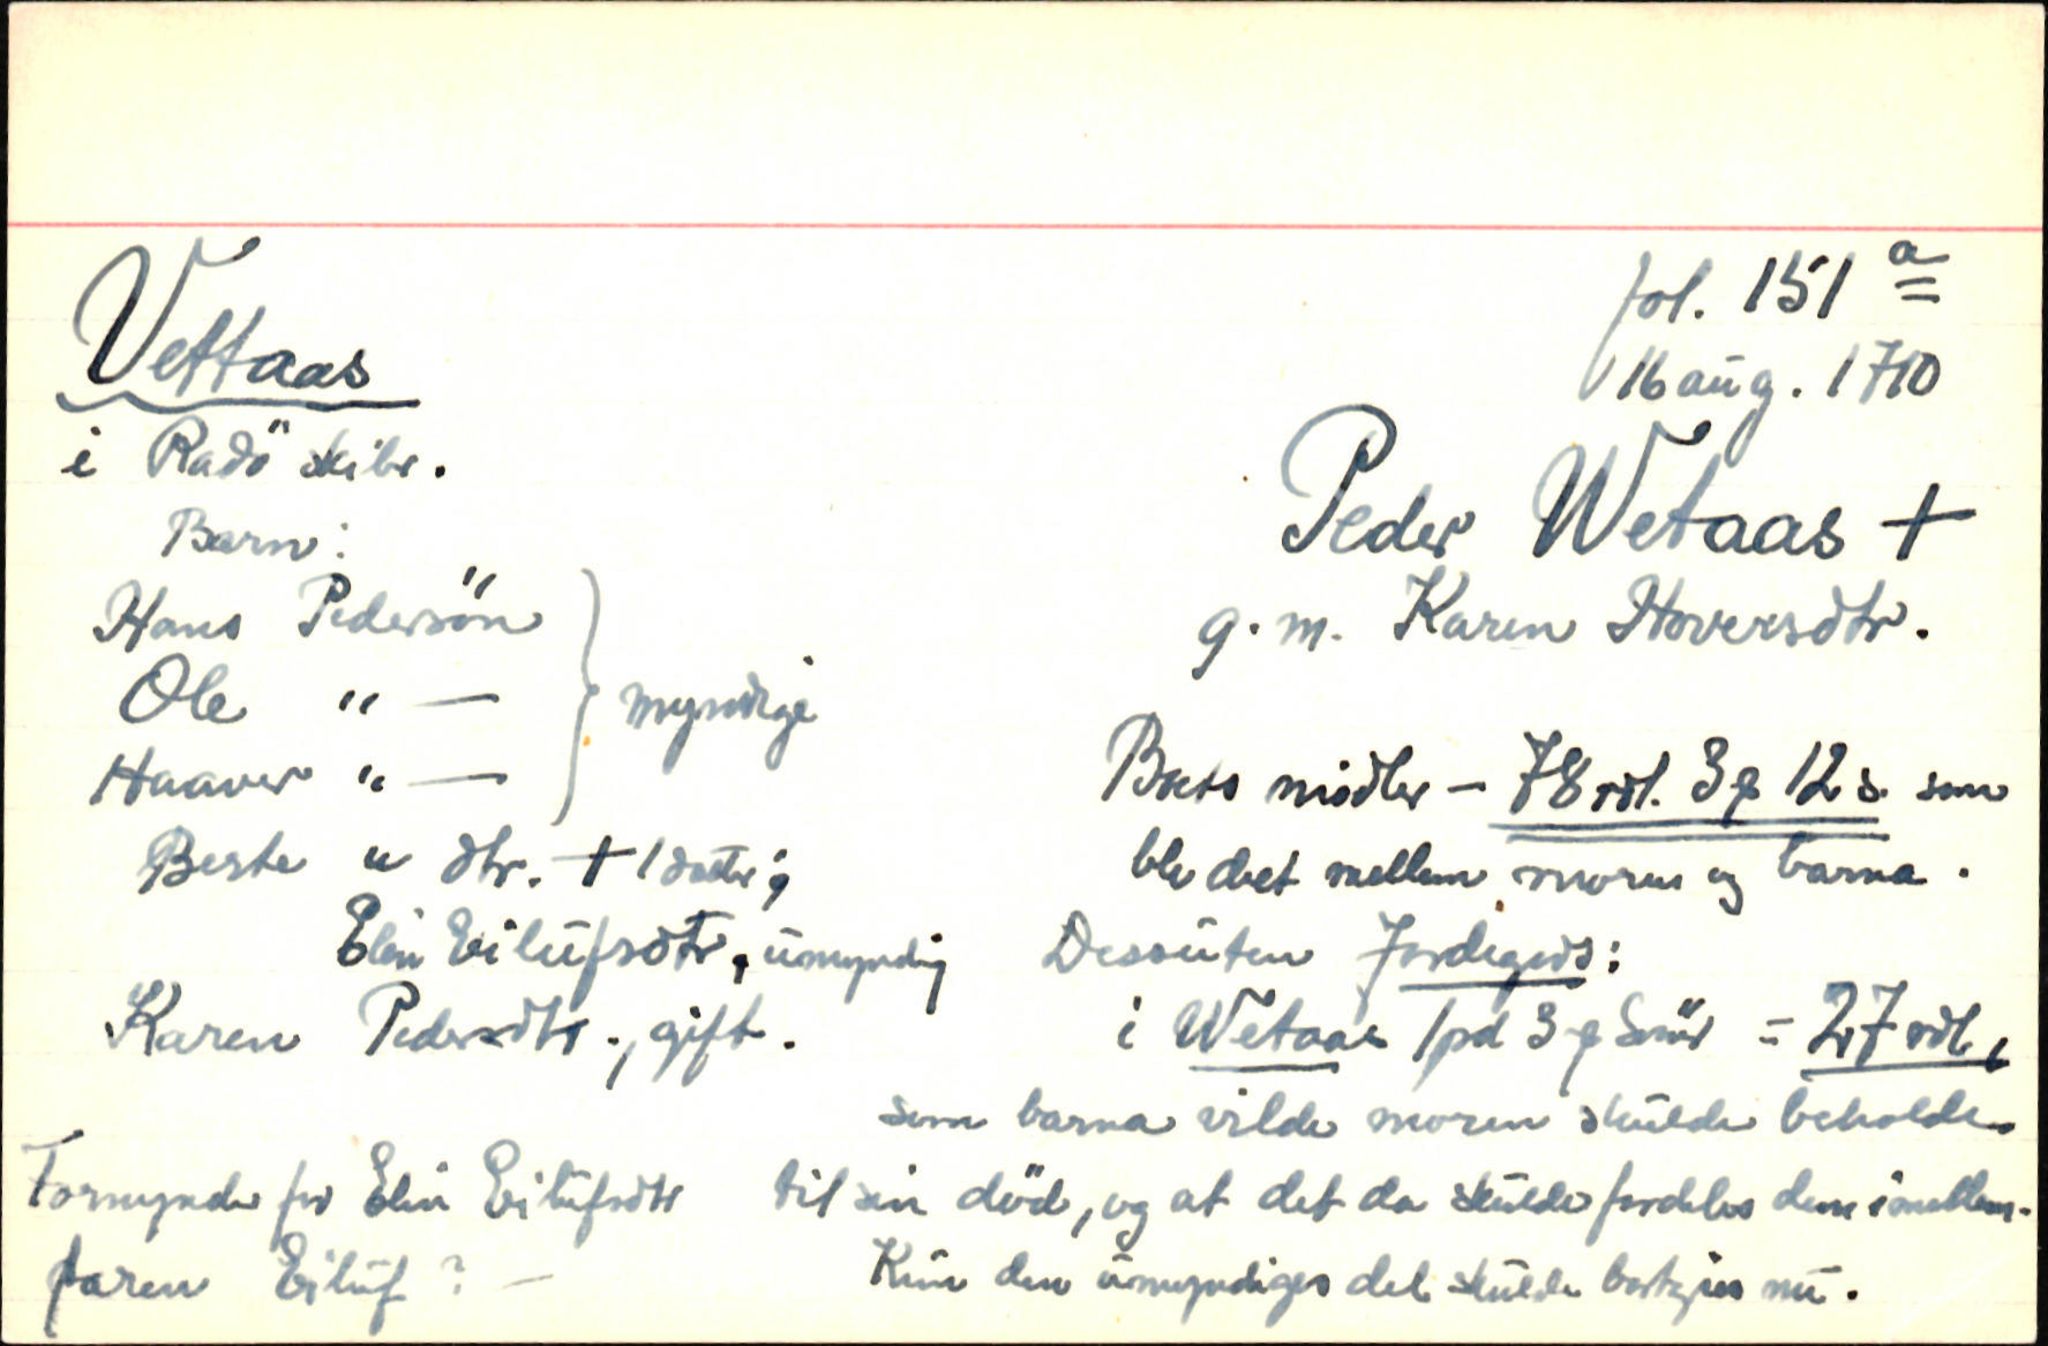 Vettaas
i Radö skibr.
Barn:
Hans Pedersön
Ole " —
Haaver " —
} myndige
Berte " dtr. + 1 datter;
Elin Eilufsdtr, umyndig
Karen Pedersdtr., gift.
Formynder for Elin Eilufsdtr
faren Eiluf? —
fol. 151 a
16 aug. 1710
Peder Wetaas +
g. m. Karen Hoversdtr.
Boets midler – 78 rdl. 3 12 s. som
blev delt mellem moren og barna.
Dessuten Jordegods:
i Wetaas 1 pd 3 Smör = 27 rdl,
som barna vilde moren skulde beholde
til sin död, og at det da skulde fordeles dem imellem.
Kun den umyndiges del skulde nu.